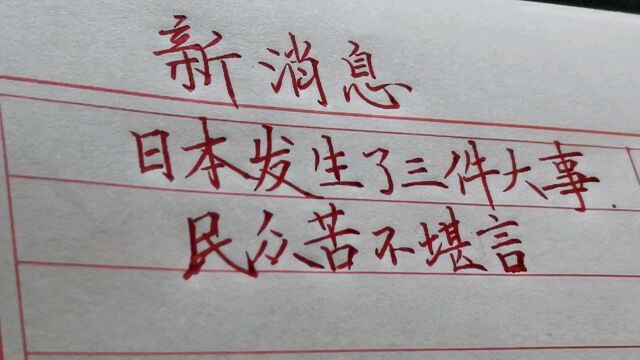 新消息
日本发生了三件大事
民众苦不堪言